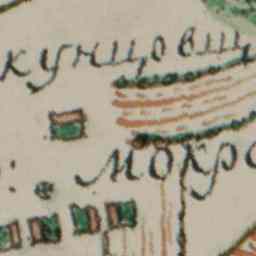 кунцовщ
мокро